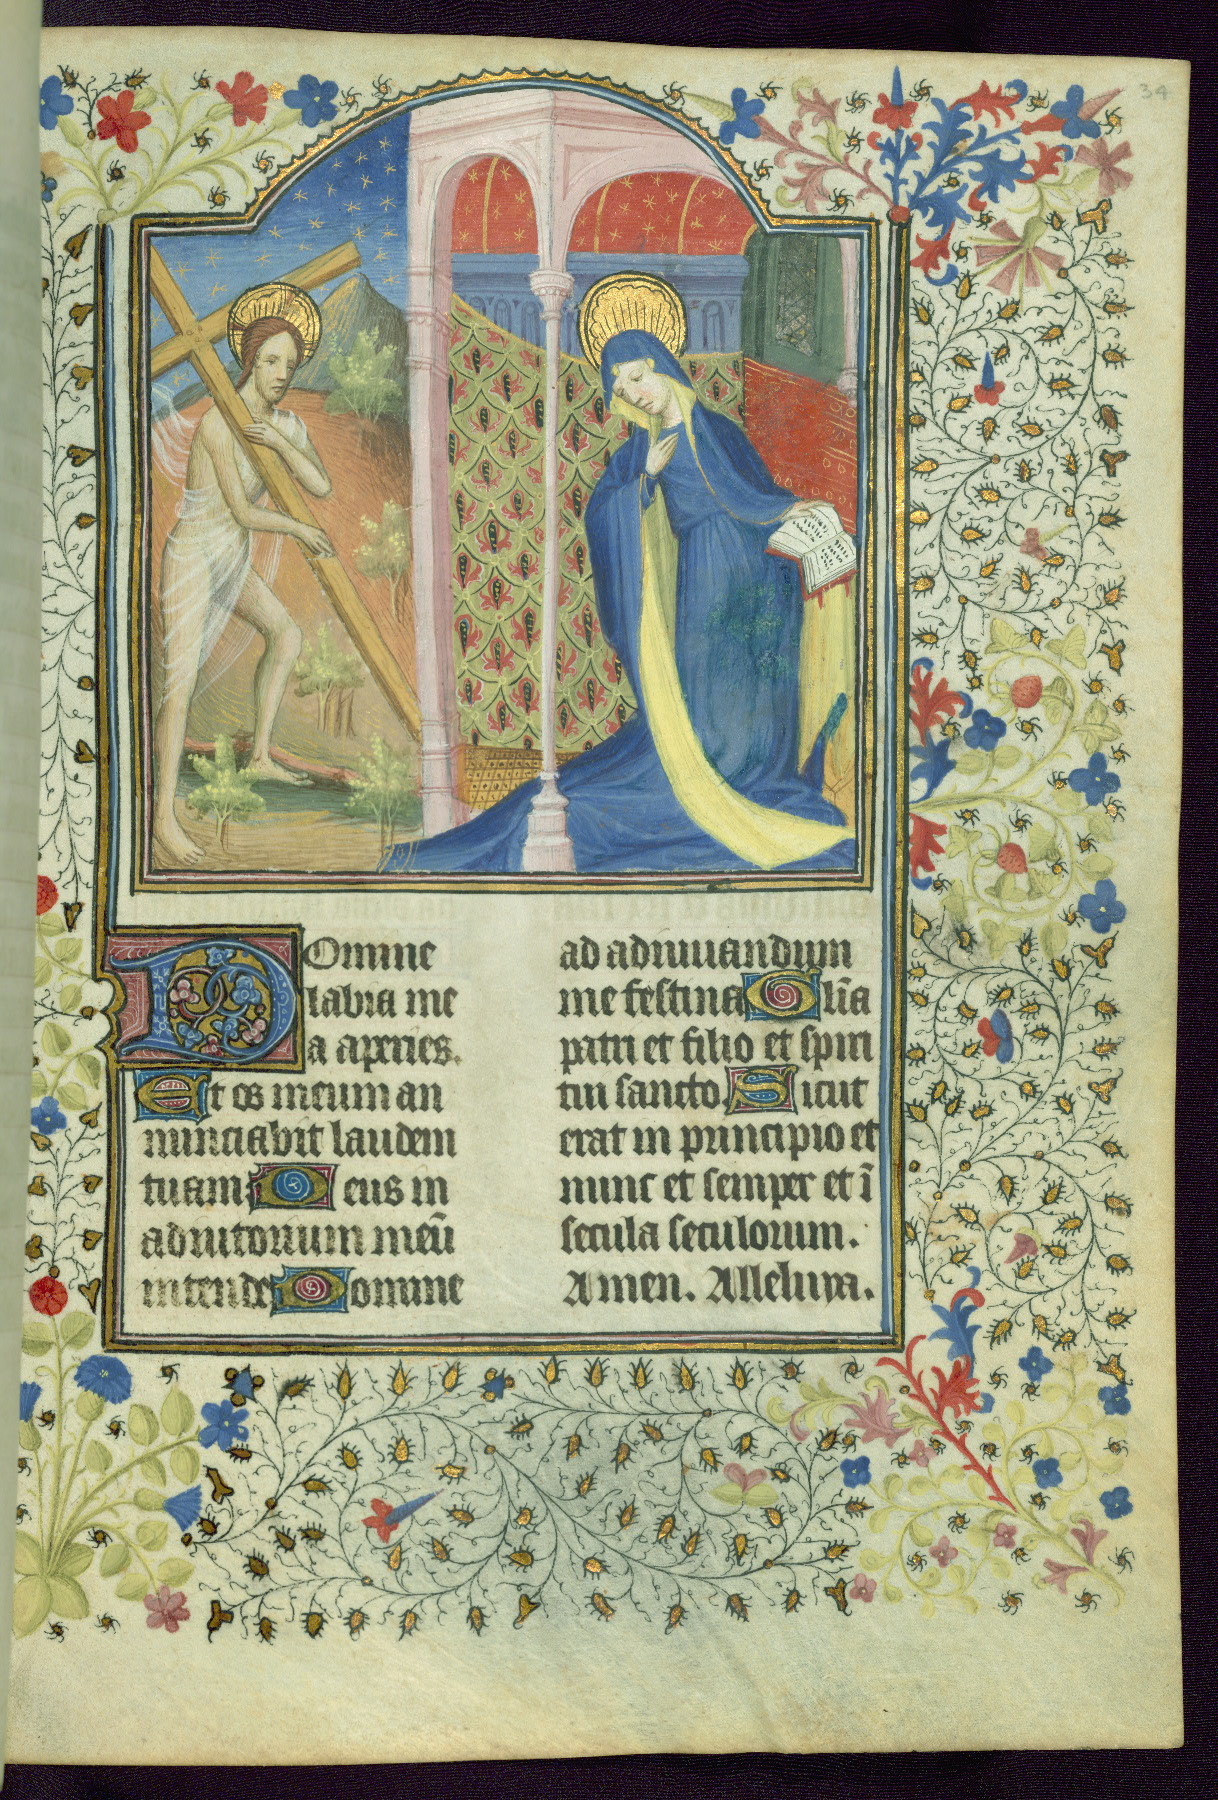 34
Domine
labia me
a aperies.
Et os meum an
nunciabit laudem
tuam Deus in
adiutorium meū
intende Domine
ad adiuuandum
me festina Glīa
patri et filio et spiri
tui sancto. Sicut
erat in principio et
nunc et semper et ī
secula seculorum.
Amen. Alleluya.